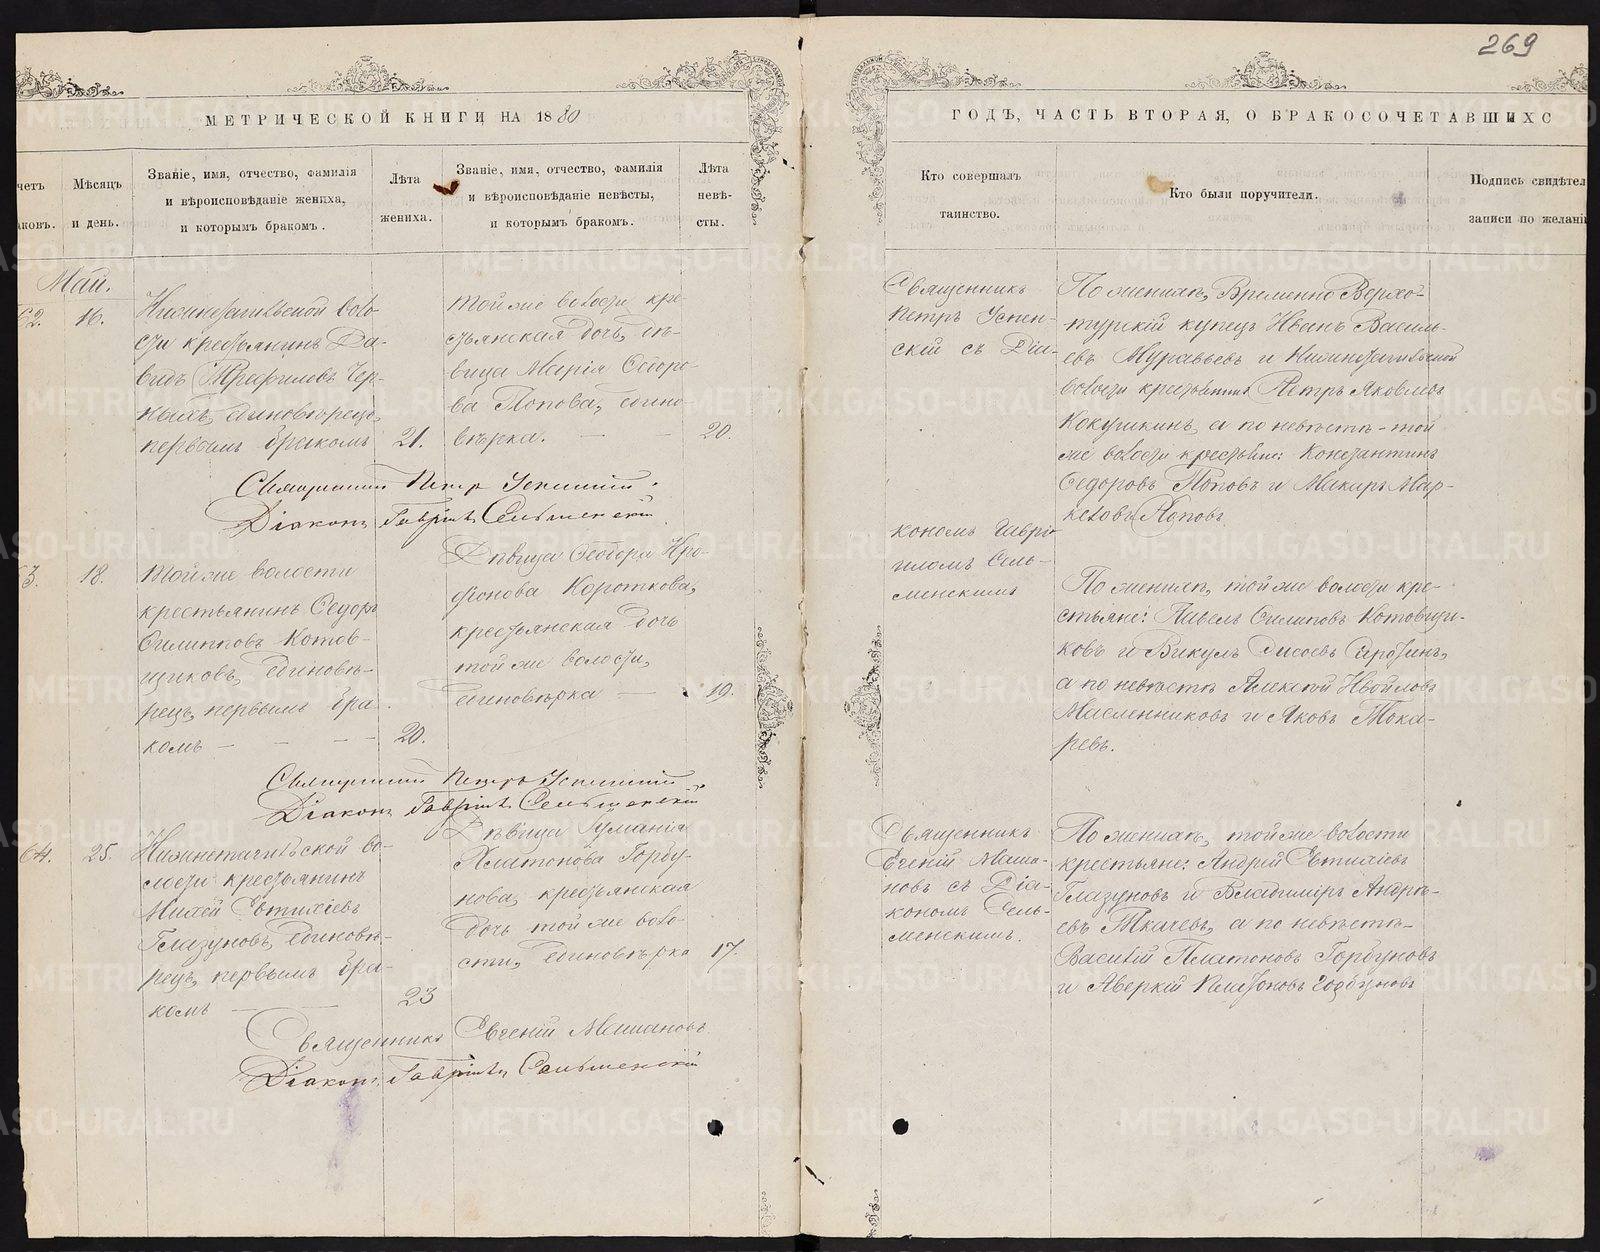 269
МЕТРИЧЕСКОЙ КНИГИ НА 1880
ГОДЪ, ЧАСТЬ ВТОРАЯ, О БРАКОСОЧЕТАВШИХС
четъ
аковъ.
Мѣсяцъ
и день.
Званіе, имя, отчество, фамилія
и вѣроисповѣданіе жениха,
и которымъ бракомъ.
Лѣта
жениха.
Званіе, имя, отчество, фамилія
и вѣроисповѣданіе невѣсты,
и которымъ бракомъ.
Лѣта
невѣ-
сты.
Кто совершалъ
таинство.
Кто были поручители.
Подпись свидѣтел
записи по желані
Май.
62.
16.
Нижнетагильской воло-
сти крестьянинъ Да-
видъ Трефиловъ Чер-
ныхъ, единовѣрецъ,
первымъ бракомъ
21.
той же волости кре-
стьянская дочь, дѣ-
вица Марія Ѳедоро-
ва Попова, едино-
вѣрка. — —
20.
Священникъ
Петръ Успен-
скій съ Діа-
кономъ Гаврі-
иломъ Сель-
менскимъ
По женихѣ, Временно Верхо-
турскій купецъ Иванъ Василь-
евъ Муравьевъ и Нижнетагильской
волости крестьянинъ Петръ Яковлевъ
Кокушкинъ, а по невѣстѣ - той
же волости крестьяне: Константинъ
Ѳедоровъ Поповъ и Макаръ Мар-
келовъ Поповъ.
Священникъ Петръ Успенскій.
Діаконъ Гавріилъ Сельменскій
63.
18.
Той же волости
крестьянинъ Ѳедоръ
Филипповъ Котов-
щиковъ, единовѣ-
рецъ, первымъ бра-
комъ — — — —
20.
Дѣвица Ѳедора Иро-
діонова Короткова,
крестьянская дочь
той же волости,
единовѣрка —
19.
По женихѣ, той же волости кре-
стьяне: Павелъ Филиповъ Котовщи-
ковъ и Викулъ
а по невѣстѣ Алексѣй
Масленниковъ и Яковъ Тока-
ревъ.
Священникъ Петръ Успенскій
Діаконъ Гавріилъ Сельменскій
64.
25.
Нижнетагильской во-
лости крестьянинъ
Михей Евтихіевъ
Глазуновъ, единовѣ-
рецъ, первымъ бра-
комъ —
23
Дѣвица
Платонова Горбу-
нова, крестьянская
дочь той же воло-
сти, единовѣрка
17.
Священникъ
Евгеній Маша-
новъ съ Діа-
кономъ Сель-
менскимъ.
По женихѣ, той же волости
крестьяне: Андрей Евтихіевъ
Глазуновъ и Владиміръ Андрѣ-
евъ Ткачевъ, а по невѣстѣ -
Василій Платоновъ Горбуновъ
и Аверкій Платоновъ Горбуновъ
Священникъ Евгеній Машановъ
Діаконъ Гавріилъ Сельменскій
METRIKI.GASO-URAL.RU